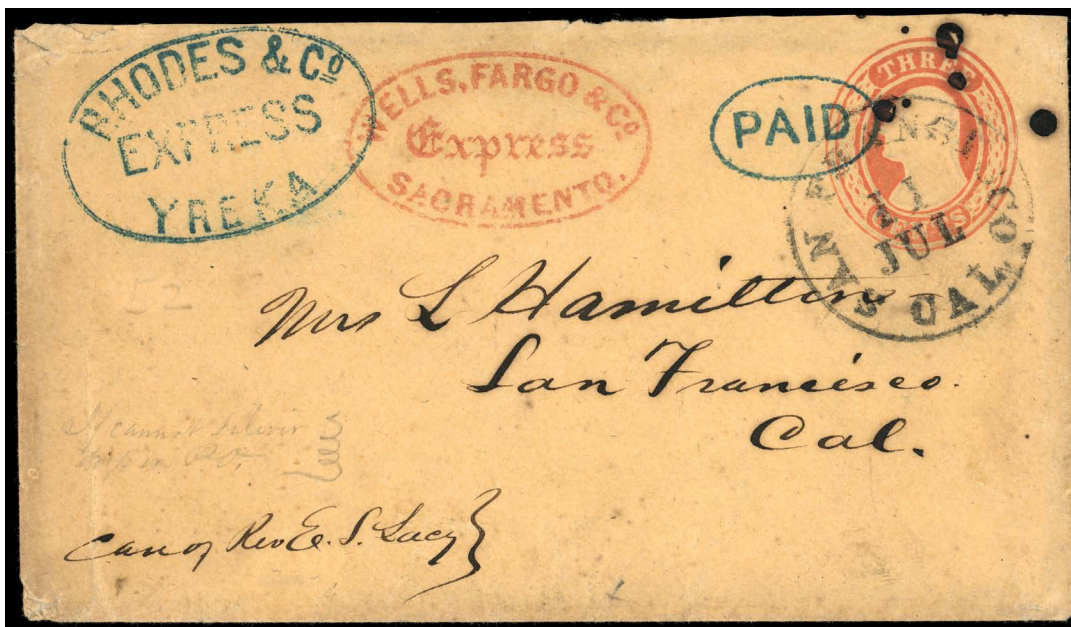 RHODES & Co
EXPRESS
YREKA
WELLS, FARGO & Co
Express
SACRAMENTO.
PAID
THREE
CENTS
SAN FRANCISCO CAL
21
JUL
52
Mrs L Hamilton
San Francisco.
Cal.
If cannot deliver
in P.O.
Care of Rev E. S. Lacy